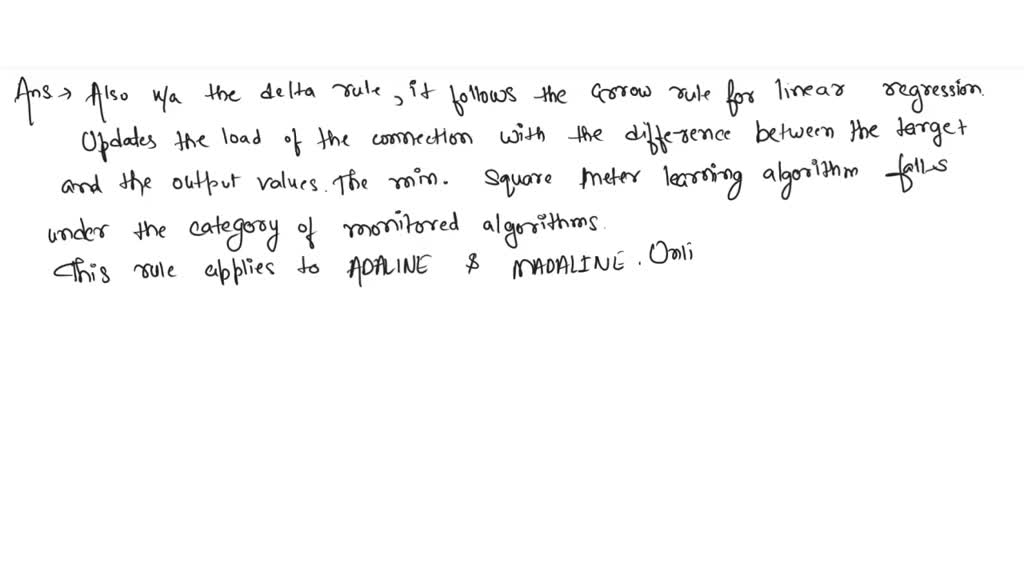 Ans → Also k/a the delta rule, it follows the Grrow rule for linear regression.
Updates the load of the connection with the difference between the target
and the output values. The min. square meter learning algorithm falls
under the category of monitored algorithms.
This rule applies to ADALINE & MADALINE. Onli